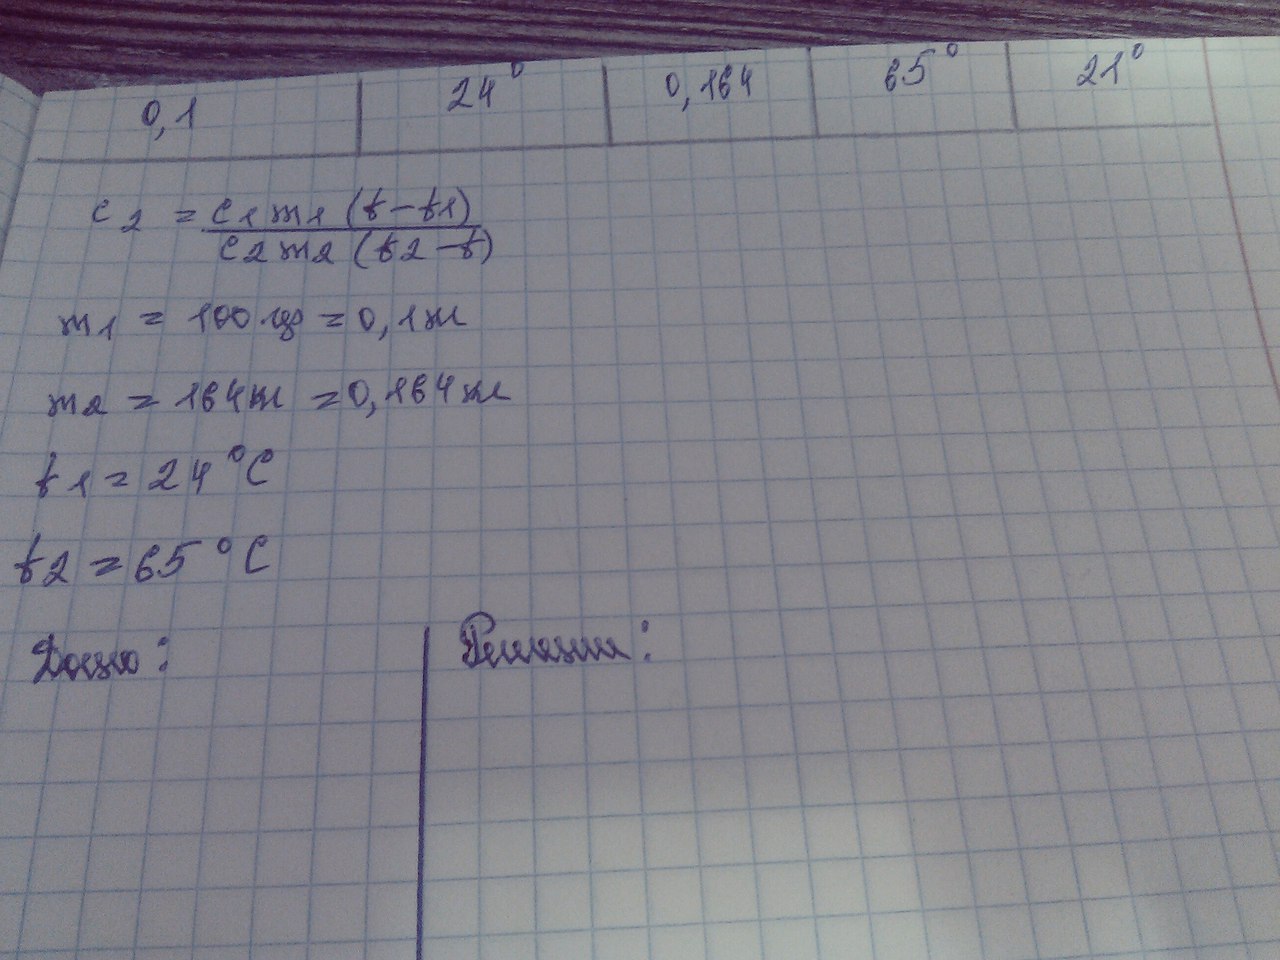 0,1 24° 0,164 65° 21°
c2 = c1m1(t-t1)
c2m2(t2-t)
m1 = 100 гр = 0,1кг
m2 = 164кг = 0,164кг
t1 = 24°C
t2 = 65°C
Дано: Решение: